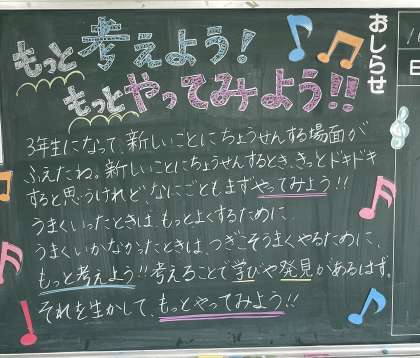 おしらせ
もっと考えよう!
もっとやってみよう!!
3年生になって、新しいことにちょうせんする場面が
ふえたわ。新しいことにちょうせんするとき、きっとドキドキ
すると思うけれど、なにごともまずやってみよう!!
うまくいったときは、もっとよくするために、
うまくいかなかったときは、つぎこそうまくやるために、
もっと考えよう!!考えることで学びや発見があるはず。
それを生かして、もっとやってみよう!!